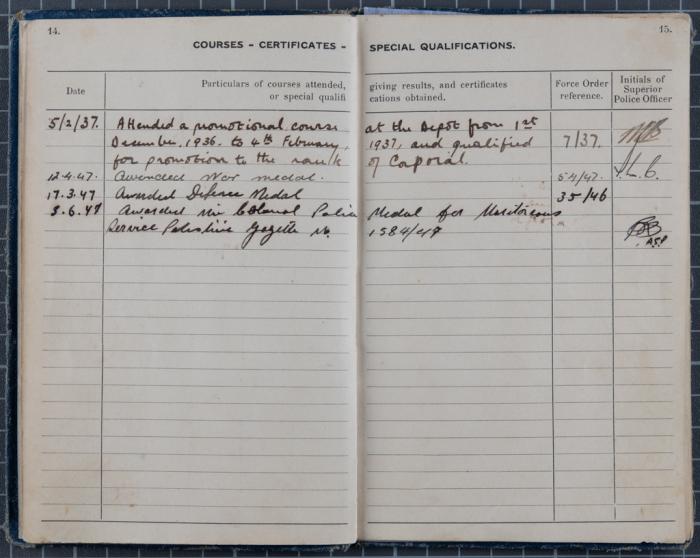 14.
15.
COURSES – CERTIFICATES – SPECIAL QUALIFICATIONS.
Date
Particulars of courses attended, giving results, and certificates
or special qualifi cations obtained.
Force Order
reference.
Initials of
Superior
Police Officer
5/2/37. Attended a promotional course at the Depot from 1st
December, 1936. to 4th February, 1937, and qualified 7/37.
for promotion to the rank of Corporal.
12.4.47. Awarded War medal. 54/47.
17.3.47 Awarded Defence Medal 35/46
3.6.47 Awarded the Colonial Police Medal for Meritorious
Service Palestine Gazette No. 1584/47
A.S.P